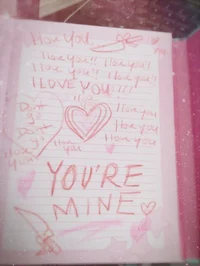 I love you!
I love you!! I love you!
I love you!! I love you!
I LOVE YOU!!!
Don't
go
Don't
go
I love you
I love you
I love you
I love you
YOU'RE
MINE